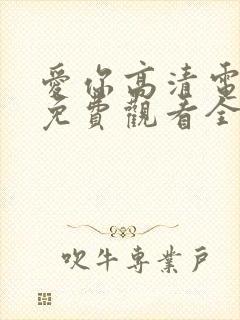 愛你高清電
免費觀看全
吹牛專業戶